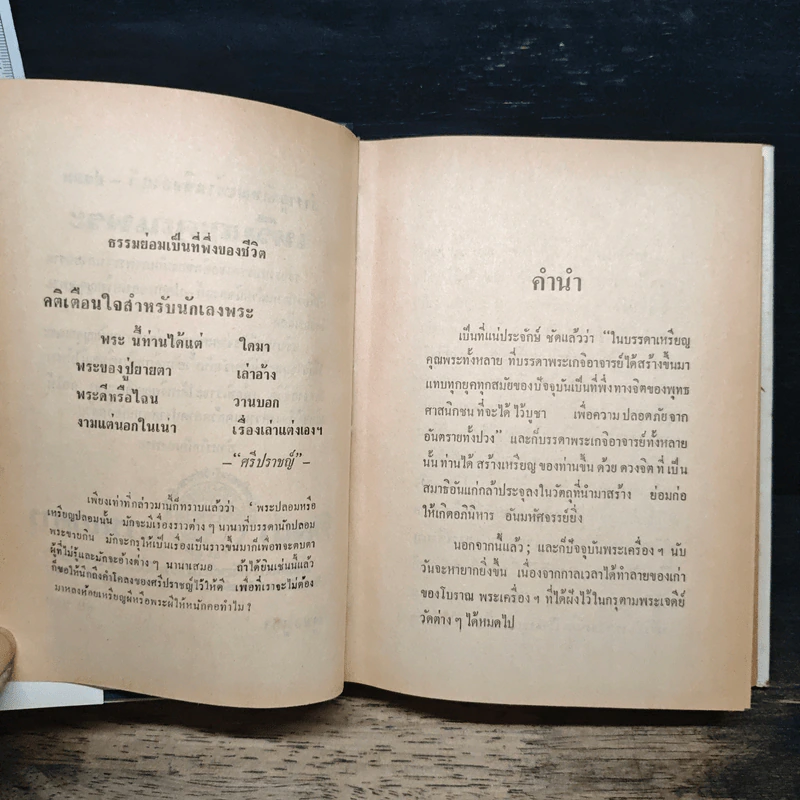 ธรรมย่อมเป็นที่พึ่งของชีวิต
คติเตือนใจสำหรับนักเลงพระ
พระ นี้ท่านได้แต่ ใดมา
พระของปู่ยายตา เล่าอ้าง
พระดีหรือไฉน วานบอก
งามแต่นอกในเน่า เรื่องเล่าแต่งเองฯ
–“ศรีปราชญ์”–
เพียงเท่าที่กล่าวมานี้ก็ทราบแล้วว่า ‘ พระปลอมหรือ
เหรียญปลอมนั้น มักจะมีเรื่องราวต่าง ๆ นานาที่บรรดานักปลอม
พระขายกิน มักจะกรุให้เป็นเรื่องเป็นราวขึ้นมาก็เพื่อที่จะตบตา
ผู้ที่ไม่รู้และมักจะอ้างต่าง ๆ นานาเสมอ ถ้าได้ยินเช่นนี้แล้ว
ก็ขอให้นึกถึงคำโคลงของศรีปราชญ์ไว้ให้ดี เพื่อที่เราจะไม่ต้อง
มาหลงห้อยเหรียญผีหรือพระผีให้หนักคอทำไม ?
คำนำ
เป็นที่แน่ประจักษ์ ชัดแล้วว่า “ในบรรดาเหรียญ
คุณพระทั้งหลาย ที่บรรดาพระเกจิอาจารย์ได้สร้างขึ้นมา
แทบทุกยุคทุกสมัยของปัจจุบันเป็นที่พึ่งทางจิตของพุทธ
ศาสนิกชน ที่จะได้ ไว้บูชา เพื่อความ ปลอดภัย จาก
อันตรายทั้งปวง” และก็บรรดาพระเกจิอาจารย์ทั้งหลาย
นั้น ท่านได้ สร้างเหรียญ ของท่านขึ้น ด้วย ดวงจิต ที่ เป็น
สมาธิอันแก่กล้าประจุลงในวัตถุที่นำมาสร้าง ย่อมก่อ
ให้เกิดอภินิหาร อันมหัศจรรย์ยิ่ง
นอกจากนี้แล้ว ; และก็ปัจจุบันพระเครื่อง ฯ นับ
วันจะหายากยิ่งขึ้น เนื่องจากกาลเวลาได้ทำลายของเก่า
ของโบราณ พระเครื่อง ฯ ที่ได้ฝังไว้ในกรุตามพระเจดีย์
วัดต่าง ๆ ได้หมดไป